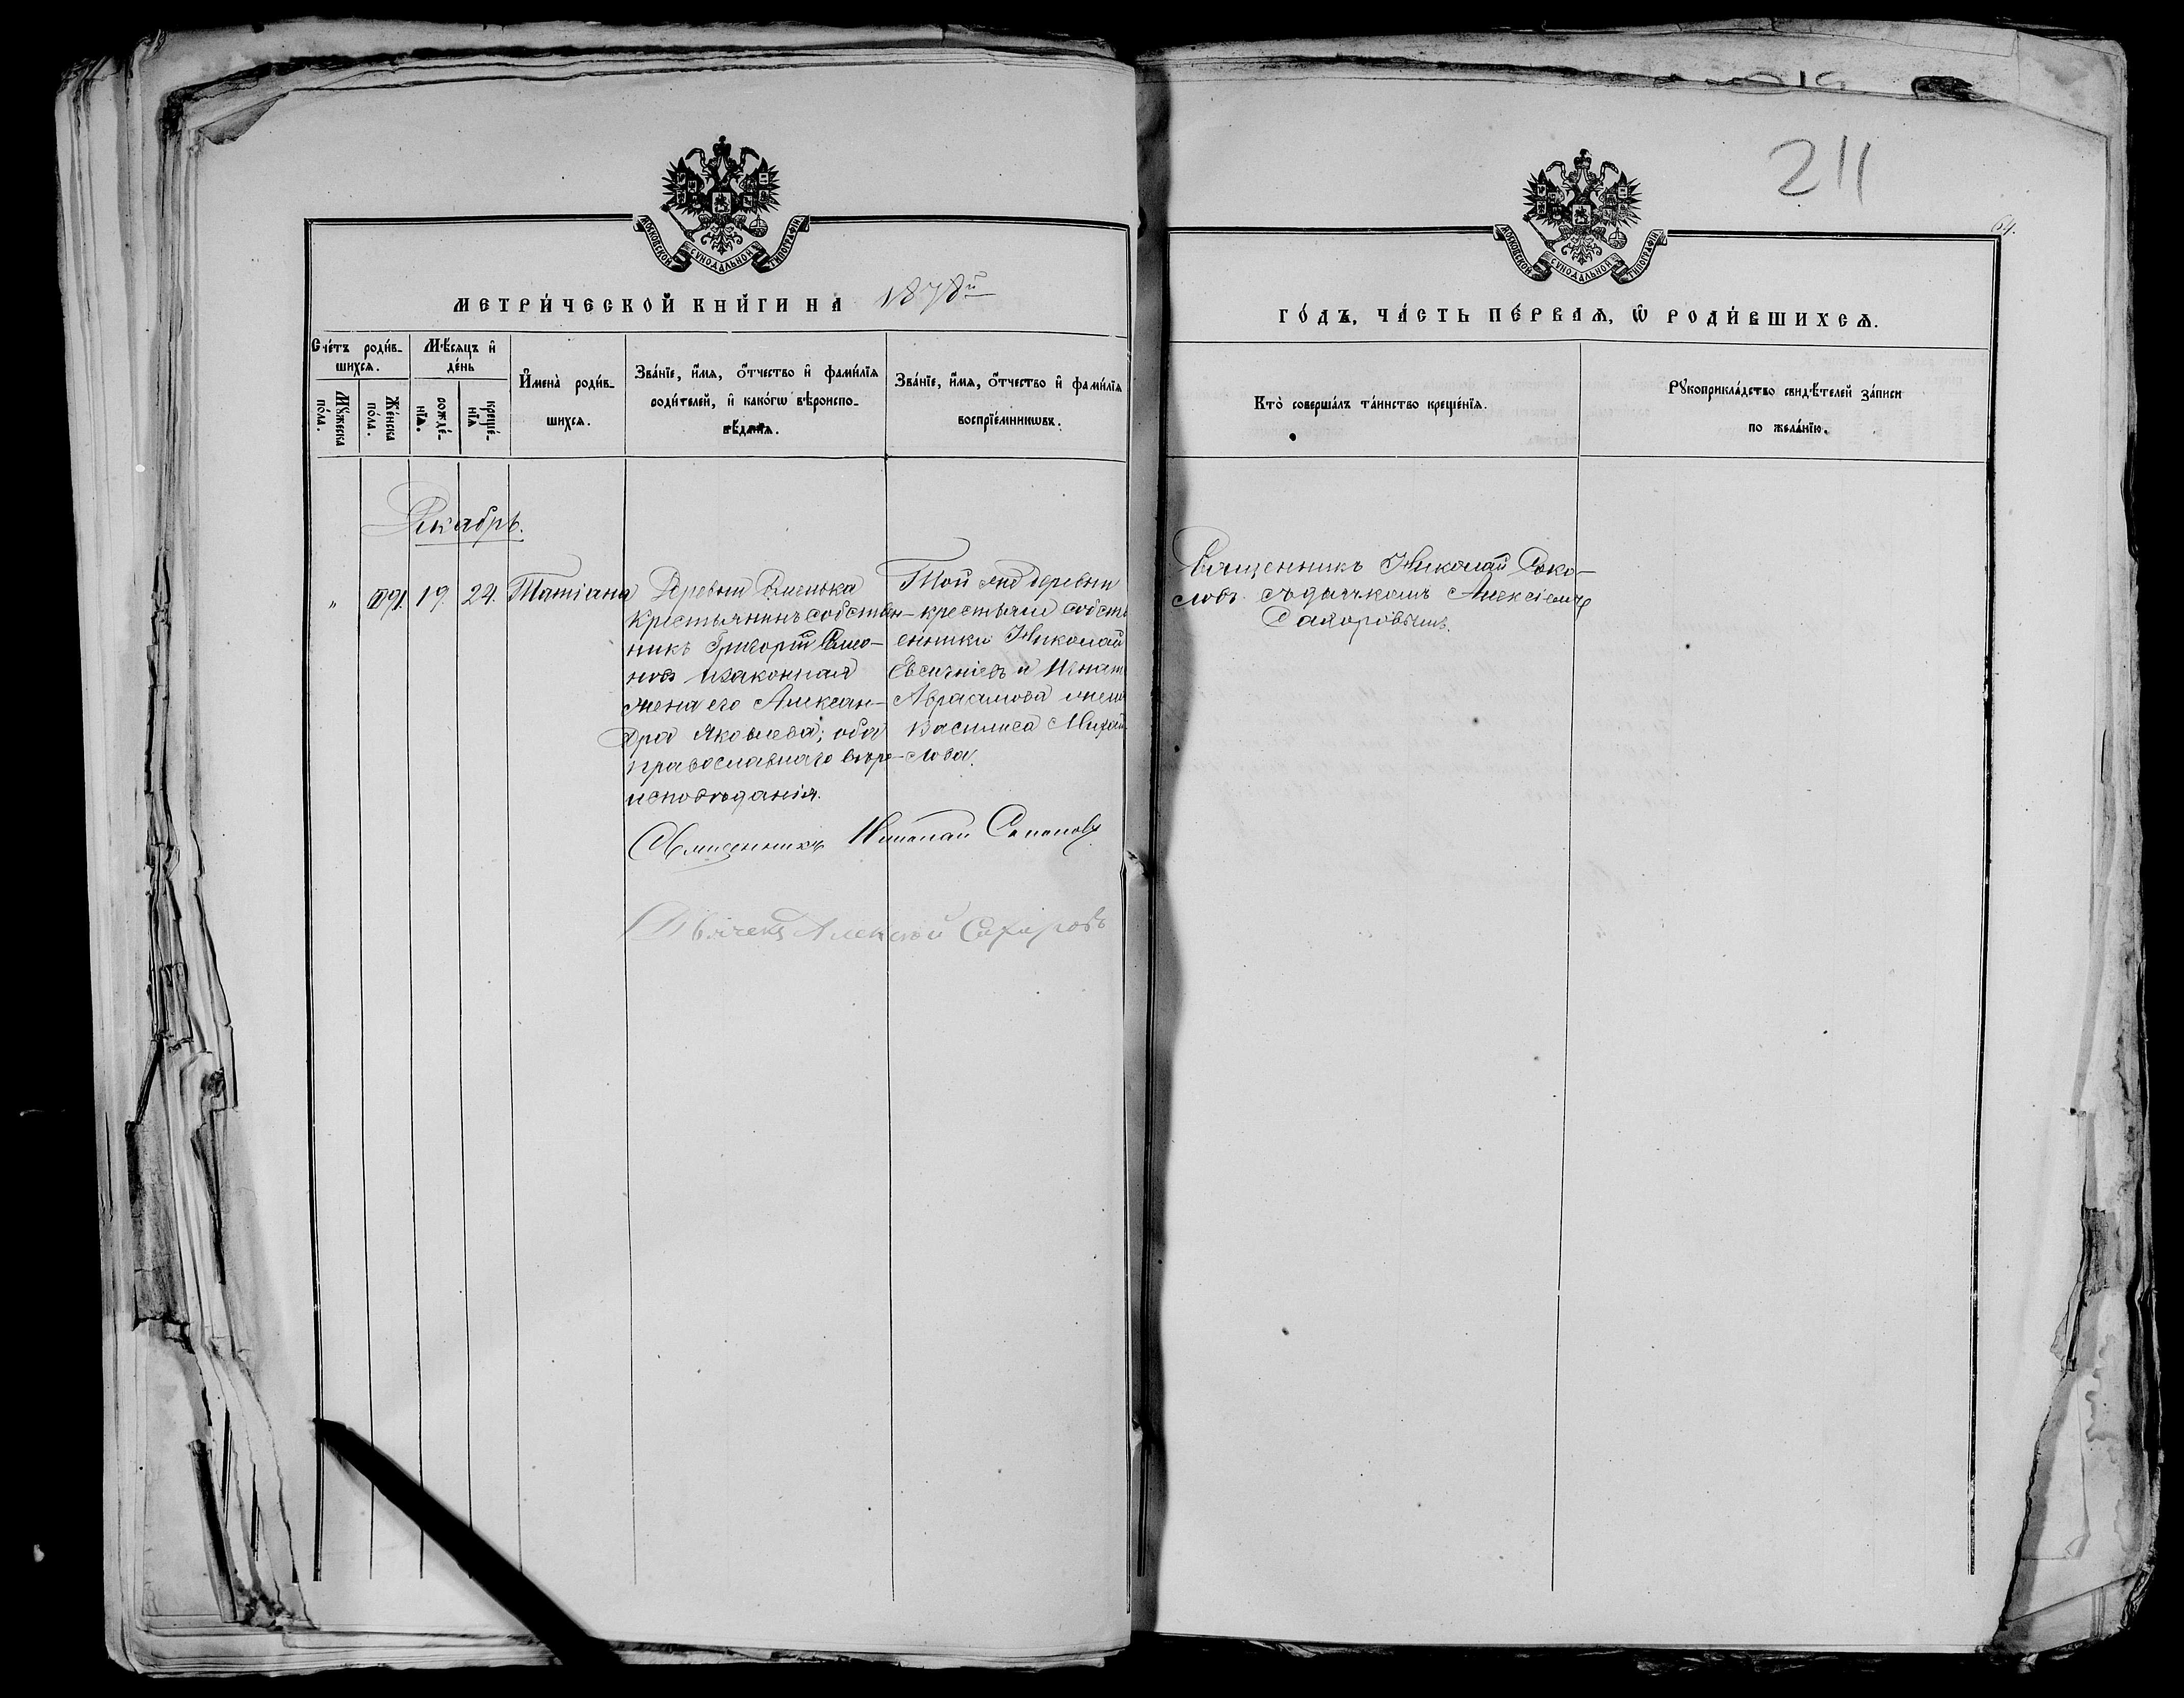 211
64.
МОСКОВСКОЙ СѴНОДАЛЬНОЙ ТИПОГРАФІИ.
МЕТРИ́ЧЕСКОЙ КНИ́ГИ НА 1878й
Сче́тъ роди́в-
шихсѧ.
Мꙋ́жеска
по́ла.
Же́нска
по́ла.
Мѣ́сѧцъ и҆
де́нь
рожде́-
нїѧ.
креще́-
нїѧ
И҆мена̀ роди́в-
шихсѧ.
Зва́нїе, и҆́мѧ, ѻ҆́тчество и҆ фами́лїѧ
роди́телей, и҆ како́гѡ вѣроиспо-
вѣ́данїѧ.
Зва́нїе, и҆́мѧ, ѻ҆́тчество и҆ фами́лїѧ
воспрїе́мникѡвъ.
Декабрь.
" 91. 19. 24. Татіана
Деревни
крестьянинъ собствен-
никъ Григорій Симо-
новъ и законная
жена его Алексан-
дра Яковлева; оба
православнаго вѣро-
исповѣданія.
Той же деревни
крестьяне собств
енники Николай
и Игнат
Авраамова жена
Василиса Михай
лова.
Священникъ Николай Соколовъ
Дьячекъ Алексѣй Сахаровъ
МОСКОВСКОЙ СѴНОДАЛЬНОЙ ТИПОГРАФІИ.
ГО́ДЪ, ЧА́СТЬ ПЕ́РВАѦ, Ѡ҆ РОДИ́ВШИХСѦ.
Кто̀ соверша́лъ та́инство креще́нїѧ.
Рꙋкоприкла́дство свидѣ́телей за́писи
по жела́нїю.
Священникъ Николай Соко-
ловъ съ дьячкомъ Алексіемъ
Сахаровымъ.